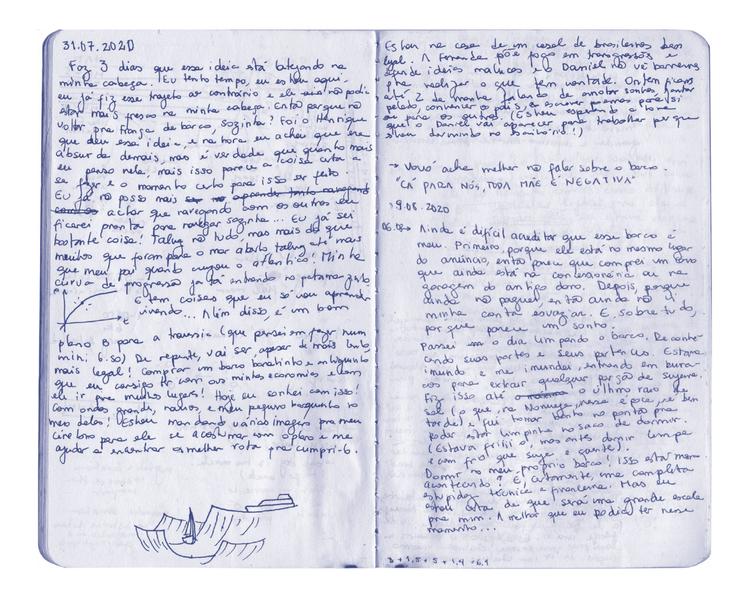 31.07.2020
Faz 3 dias que essa ideia está latejando na
minha cabeça. Eu tento tempo, eu estou aqui,
eu já fiz esse trajeto ao contrário e ele não podia
estar mais fresco na minha cabeça. Então porque não
voltar pra França de barco, sozinha? Foi o Henrique
que deu essa ideia, e na hora eu achei que era
absurda demais, mas é verdade que quanto mais
eu penso nela, mais isso parece a coisa certa a
se fazer e o momento certo para isso ser feito.
Eu já não posso mais
achar que navegando com os outros eu
ficarei pronta para navegar sozinha... Eu já sei
bastante coisa! Talvez não tudo, mas mais do que
muitos que foram para o mar aberto talvez até mais
que meu pai quando cruzou o Atlântico! Minha
curva de progresso já tá entrando no patamarzinho
P
t
E tem coisas que eu só vou aprender
vivendo... Além disso, é um bom
plano B para a transat (que pensei em fazer num
mini 6.50) De repente, vai ser, apesar de mais lento,
mais legal! Comprar um barco baratinho e antiguinho
que eu consigo ter com as minhas economias e com
ele ir pra muitos lugares! Hoje eu sonhei com isso!
Com ondas grandes, navios e meu pequeno barquinho no
meio deles! Estou mandando várias imagens pro meu
cérebro para ele se acostumar com o plano e me
ajudar a encontrar as melhor rota pra cumpri-lo.
Estou na casa de um casal de brasileiros bem
legal. A Fernanda põe fogo em transgressões e
acende ideias malucas e o Daniel não vê barreiras
pra realizar o que tem vontade. Ontem ficamos
até 2 da manhã falando de anotar sonhos, jantar
pelado, conhecer o país, e escrever poemas para si
ou para os outros. (Estou esperando a hora
que o Daniel vai aparecer para trabalhar porque
estou dormindo no escritório!)
→ Vovó acha melhor não falar sobre o barco.
"CÁ PARA NÓS, TODA MÃE É NEGATIVA"
9.08.2020
06:00 → Ainda é difícil acreditar que esse barco é
meu. Primeiro, porque ele está no mesmo lugar
do anúncio, então parece que comprei um carro
que ainda está na concessionária ou na
garagem do antigo dono. Depois, porque
ainda não paguei, então ainda não vi
minha conta esvaziar. E, sobretudo,
porque parece um sonho.
Passei o dia limpando o barco. Reconhe-
cendo suas partes e seus pertences. Estava
imundo e me imundei, entrando em bura-
cos para extrair qualquer porção de sujeira.
Fiz isso até o último raio de
sol (o que, na Noruega, nessa época, é bem
tarde) e fui tomar banho no pontão pra
poder estar limpinha no saco de dormir.
(Estava frio!, mas antes dormir limpa
e com frio que suja e quente).
Dormir no meu próprio barco! Isso está mesmo
acontecendo? É, certamente, uma completa
estupidez técnica e financeira. Mas eu
estou certa de que será uma grande escola
pra mim. A melhor que eu podia ter nesse
momento...
3 + 1,5 + 5 + 1,4